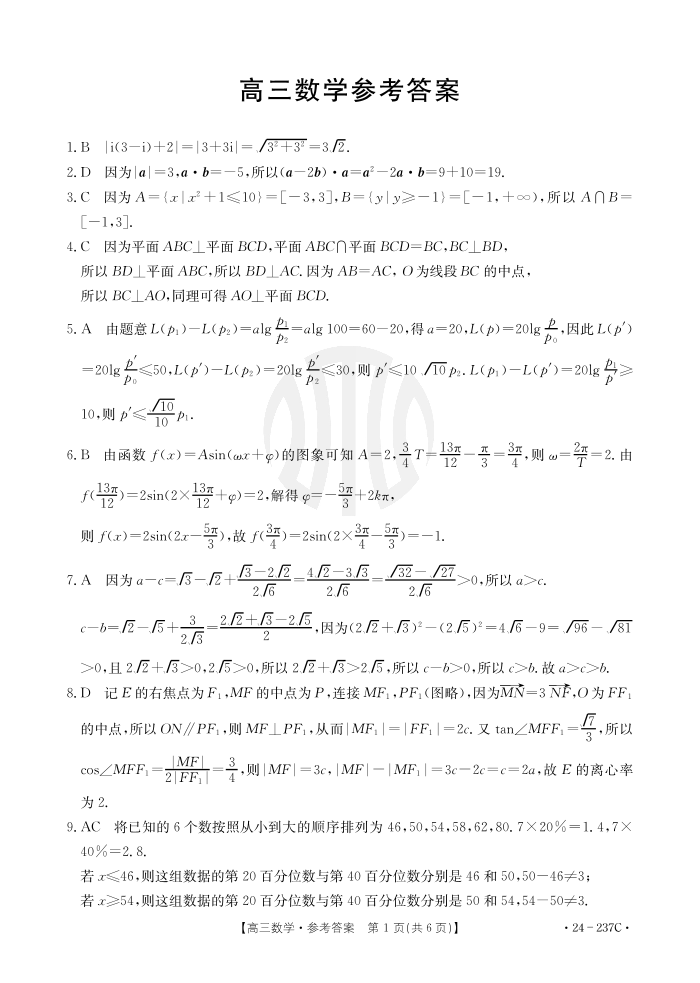 高三数学参考答案
1. B |i(3-i)+2|=|3+3i|=√(3²+3²)=3√2.
2. D 因为|a|=3,a·b=-5,所以(a-2b)·a=a²-2a·b=9+10=19.
3. C 因为 A={x|x²+1≤10}=[-3,3],B={y|y≥-1}=[-1,+∞),所以 A∩B=
[-1,3].
4. C 因为平面 ABC⊥平面 BCD,平面 ABC∩平面 BCD=BC,BC⊥BD,
所以 BD⊥平面 ABC,所以 BD⊥AC.因为 AB=AC, O 为线段 BC 的中点,
所以 BC⊥AO,同理可得 AO⊥平面 BCD.
5. A 由题意 L(p₁)-L(p₂)=alg p₁/p₂=alg 100=60-20,得 a=20,L(p)=20lg p/p₀,因此 L(p′)
=20lg p′/p₀≤50,L(p′)-L(p₂)=20lg p′/p₂≤30,则 p′≤10√10 p₂. L(p₁)-L(p′)=20lg p₁/p′≥
10,则 p′≤√10/10 p₁.
6. B 由函数 f(x)=Asin(ωx+φ)的图象可知 A=2,3/4 T=13π/12-π/3=3π/4,则 ω=2π/T=2.由
f(13π/12)=2sin(2×13π/12+φ)=2,解得 φ=-5π/3+2kπ,
则 f(x)=2sin(2x-5π/3),故 f(3π/4)=2sin(2×3π/4-5π/3)=-1.
7. A 因为 a-c=√3-√2+(√3-2√2)/(2√6)=(4√2-3√3)/(2√6)=(√32-√27)/(2√6)>0,所以 a>c.
c-b=√2-√5+3/(2√3)=(2√2+√3-2√5)/2,因为(2√2+√3)²-(2√5)²=4√6-9=√96-√81
>0,且 2√2+√3>0,2√5>0,所以 2√2+√3>2√5,所以 c-b>0,所以 c>b.故 a>c>b.
8. D 记 E 的右焦点为 F₁,MF 的中点为 P,连接 MF₁,PF₁(图略),因为MN→=3 NF→,O 为 FF₁
的中点,所以 ON∥PF₁,则 MF⊥PF₁,从而|MF₁|=|FF₁|=2c.又 tan∠MFF₁=√7/3,所以
cos∠MFF₁=|MF|/(2|FF₁|)=3/4,则|MF|=3c,|MF|-|MF₁|=3c-2c=c=2a,故 E 的离心率
为 2.
9. AC 将已知的 6 个数按照从小到大的顺序排列为 46,50,54,58,62,80. 7×20%=1.4,7×
40%=2.8.
若 x≤46,则这组数据的第 20 百分位数与第 40 百分位数分别是 46 和 50,50-46≠3;
若 x≥54,则这组数据的第 20 百分位数与第 40 百分位数分别是 50 和 54,54-50≠3.
【高三数学·参考答案 第 1 页(共 6 页)】 ·24-237C·